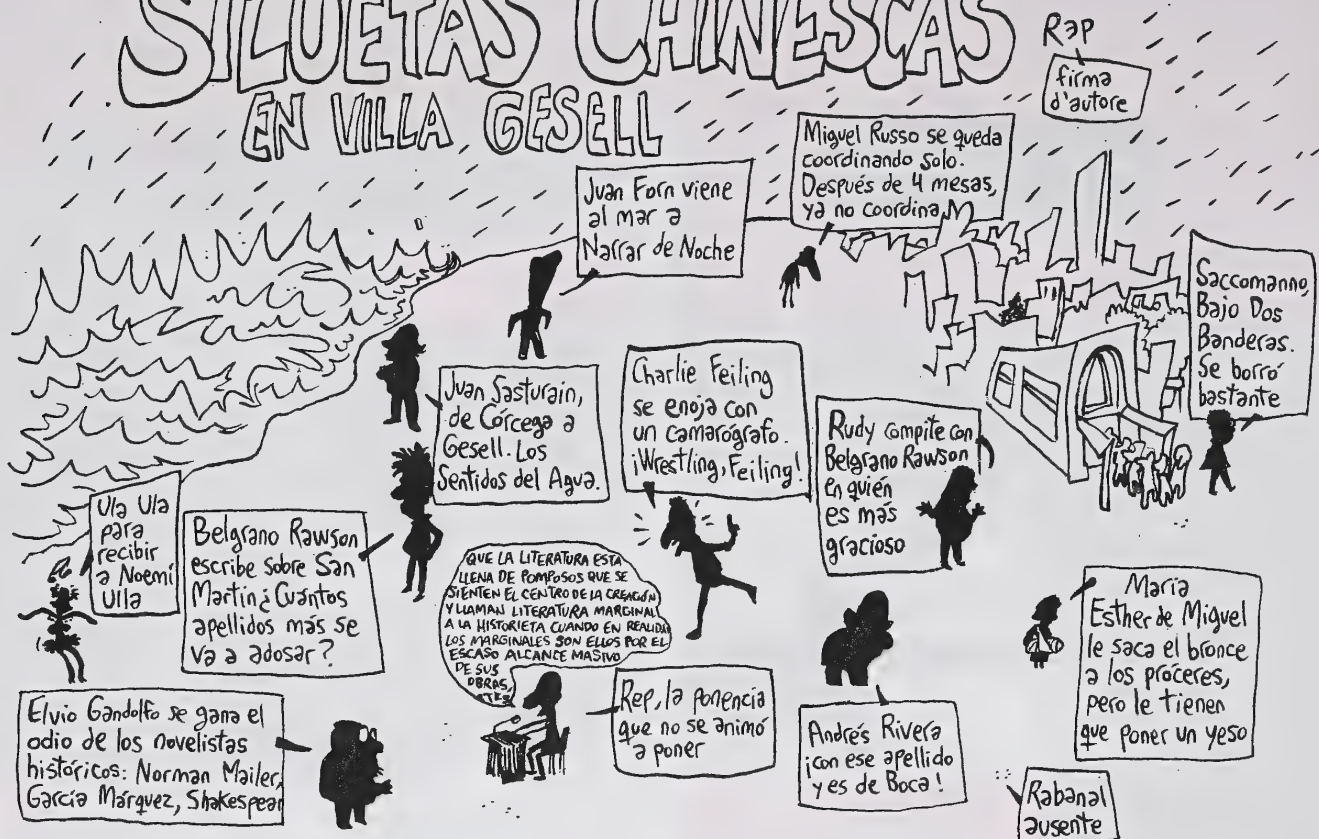 SILUETAS CHINESCAS
EN VILLA GESELL
Rep
firma
d'autore
Miguel Russo se queda
coordinando solo.
Después de 4 mesas,
ya no coordina
Juan Forn viene
al mar a
Narrar de Noche
Saccomanno,
Bajo Dos
Banderas.
Se borró
bastante
Juan Sasturain,
de Córcega a
Gesell. Los
Sentidos del Agua.
Charlie Feiling
se enoja con
un camarógrafo.
¡Wrestling, Feiling!
Rudy compite con
Belgrano Rawson
en quién
es más
gracioso
Ula Ula
para
recibir
a Noemí
Ulla
Belgrano Rawson
escribe sobre San
Martín ¿Cuántos
apellidos más se
va a adosar?
QUE LA LITERATURA ESTA
LLENA DE POMPOSOS QUE SE
SIENTEN EL CENTRO DE LA CREACIÓN
Y LLAMAN LITERATURA MARGINAL
A LA HISTORIETA CUANDO EN REALIDAD
LOS MARGINALES SON ELLOS POR EL
ESCASO ALCANCE MASIVO
DE SUS
OBRAS,
María
Esther de Miguel
le saca el bronce
a los próceres,
pero le tienen
que poner un yeso
Elvio Gandolfo se gana el
odio de los novelistas
históricos: Norman Mailer,
García Márquez, Shakespear
Rep, la ponencia
que no se animó
a poner
Andrés Rivera
¡con ese apellido
y es de Boca!
Rabanal
ausente